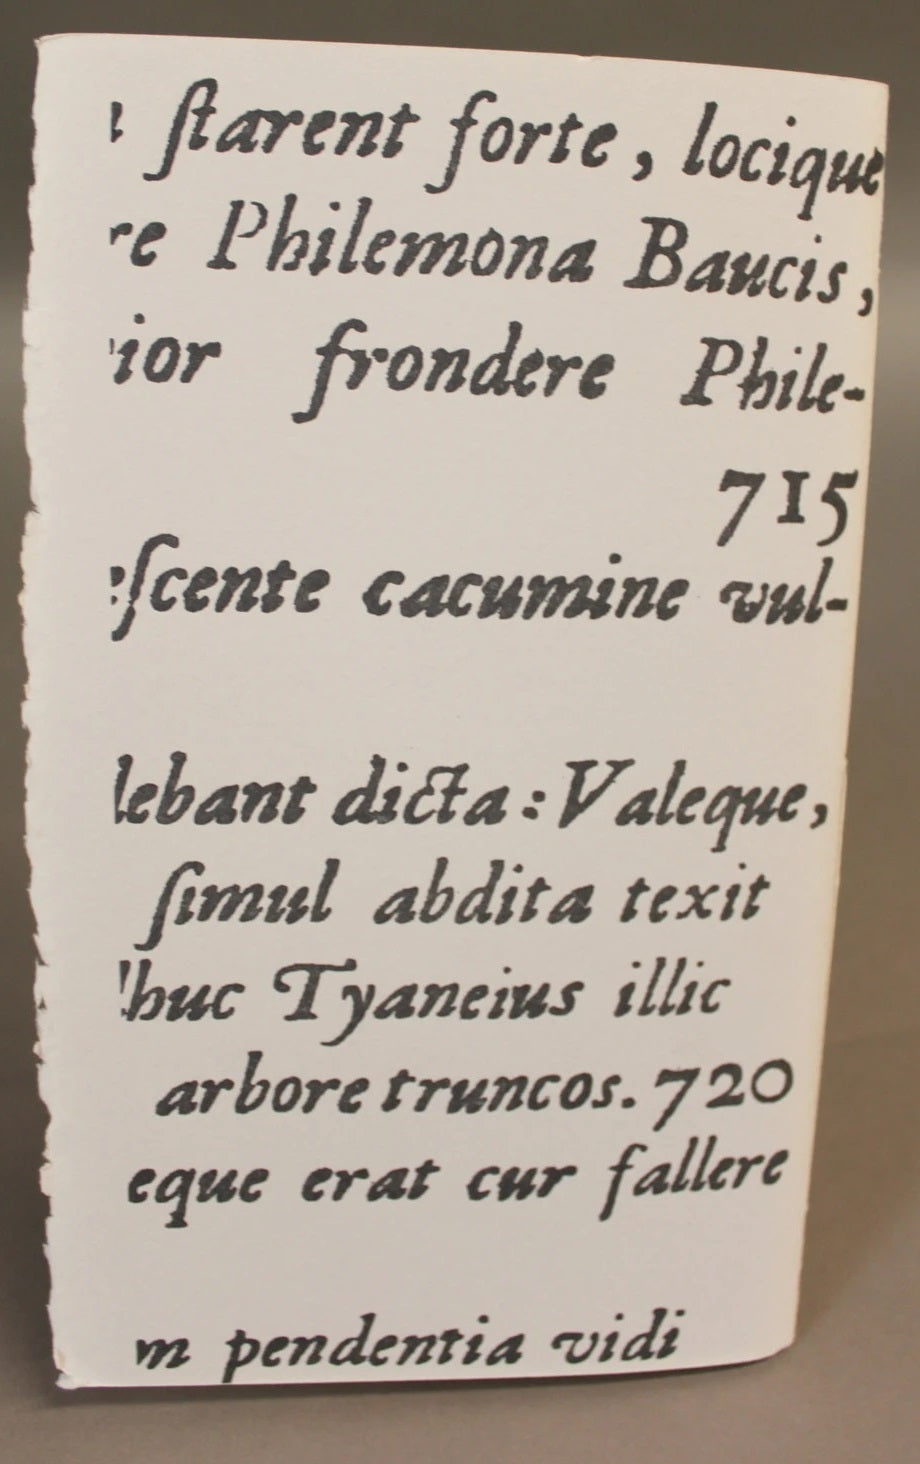 ſtarent forte, locique
re Philemona Baucis,
ior frondere Phile-
715
ſcente cacumine vul-
lebant dicta: Valeque,
ſimul abdita texit
huc Tyaneius illic
arbore truncos. 720
eque erat cur fallere
m pendentia vidi